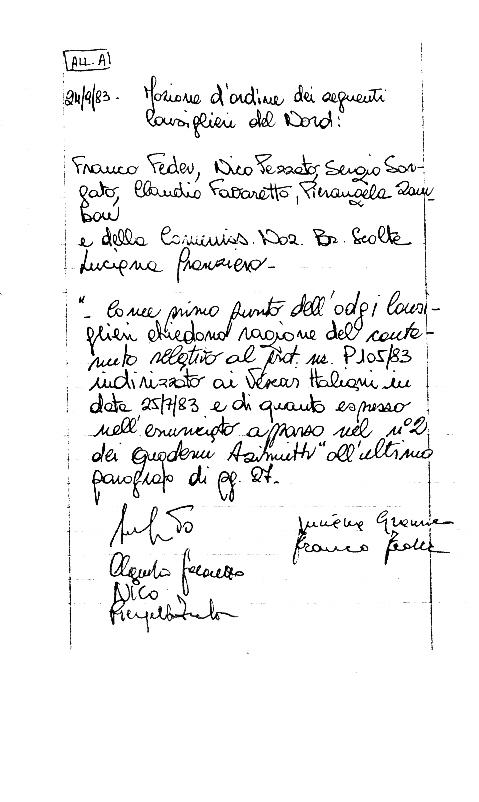 ALL. A
24/9/83. Mozione d'ordine dei seguenti
Consiglieri del Nord:
Franco Feder, Nico Pezzato, Sergio Sor-
gato, Claudio Favaretto, Pierangela Zam
bon
e della Commiss. Naz. Br. Scolte
Luciana
"- Come primo punto dell'odg i consi-
glieri chiedono ragione del conte-
nuto relativo al Prot. nr. P105/83
indirizzato ai Vescovi Italiani in
data 25/7/83 e di quanto espresso
nell'enunciato apparso nel n° 2
dei Quaderni Azimuth" all'ultimo
paragrafo di pg. 27.-
Franco Feder
Claudio Favaretto
Nico